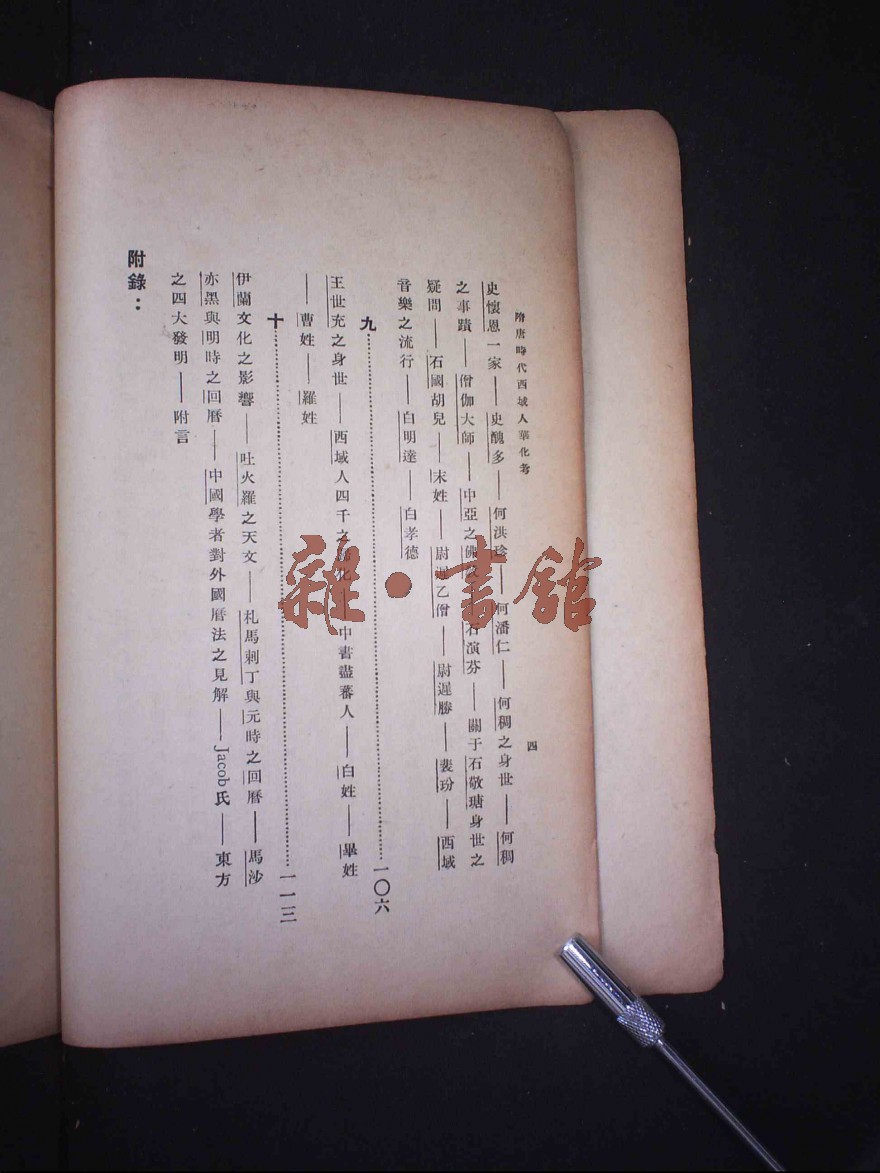 隋唐時代西域人華化考
四
史懷恩一家——史醜多——何洪珍——何潘仁——何稠之身世——何稠
之事蹟——僧伽大師——中亞之佛 石演芬——關于石敬瑭身世之
疑問——石國胡兒——末姓——尉遲乙僧——尉遲勝——裴玢——西域
音樂之流行——白明達——白孝德
九 一〇六
王世充之身世——西域人四千之 化 中書盡蕃人——白姓——畢姓
——曹姓——羅姓
十 一一三
伊蘭文化之影響——吐火羅之天文——札馬剌丁與元時之回曆——馬沙
亦黑與明時之回曆——中國學者對外國曆法之見解——Jacob氏——東方
之四大發明——附言
附錄：
雜·書館